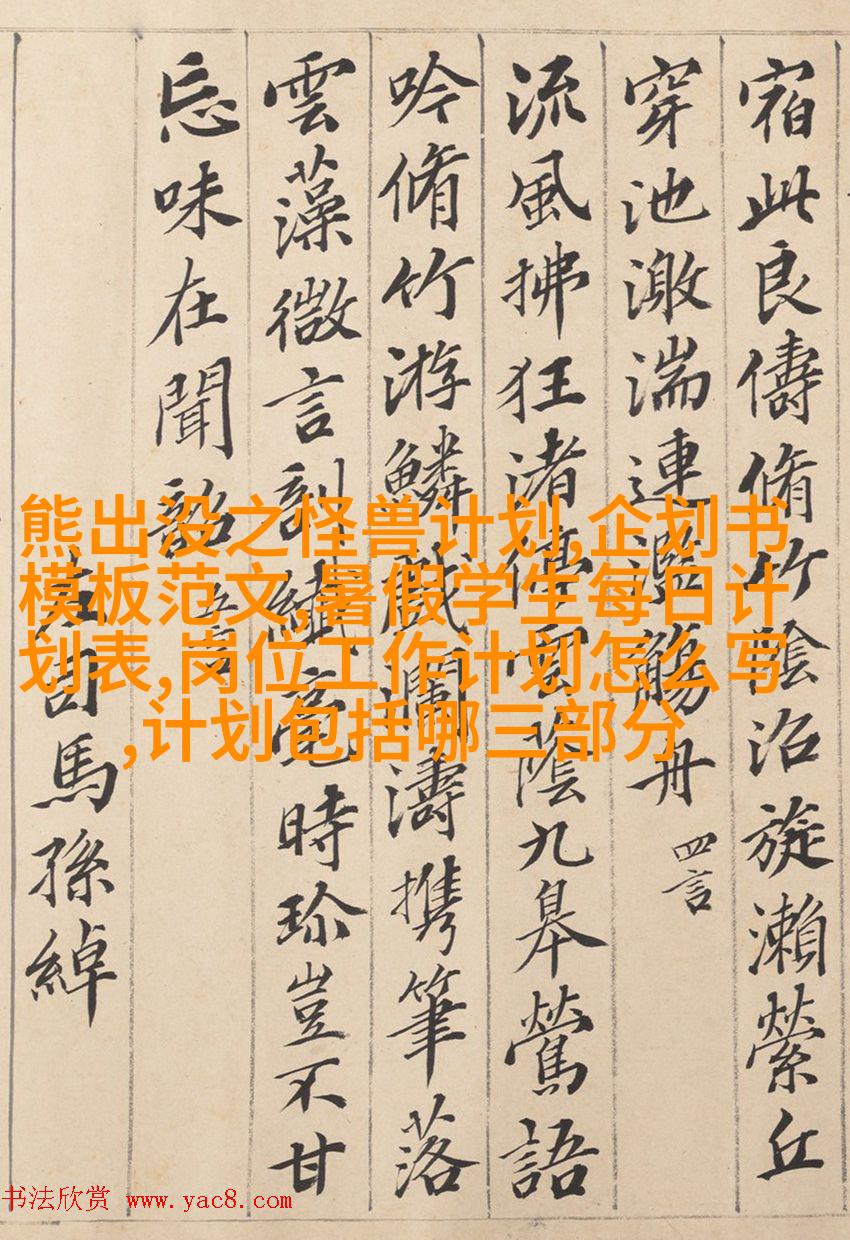 宿此良儔脩竹陰沼旋瀨縈丘
穿池激湍連濫觴舟 四言
流風拂狂渚停雲蔭九皋鶯語
吟脩竹游鱗戲瀾濤携筆落
雲藻微言剖纖毫時珎豈不甘
忘味在聞韶 五言
右司馬孫綽
熊出没之怪兽计划,企划书
模板范文,暑假学生每日计
划表,岗位工作计划怎么写
,计划包括哪三部分
书法欣赏 www.yac8.com